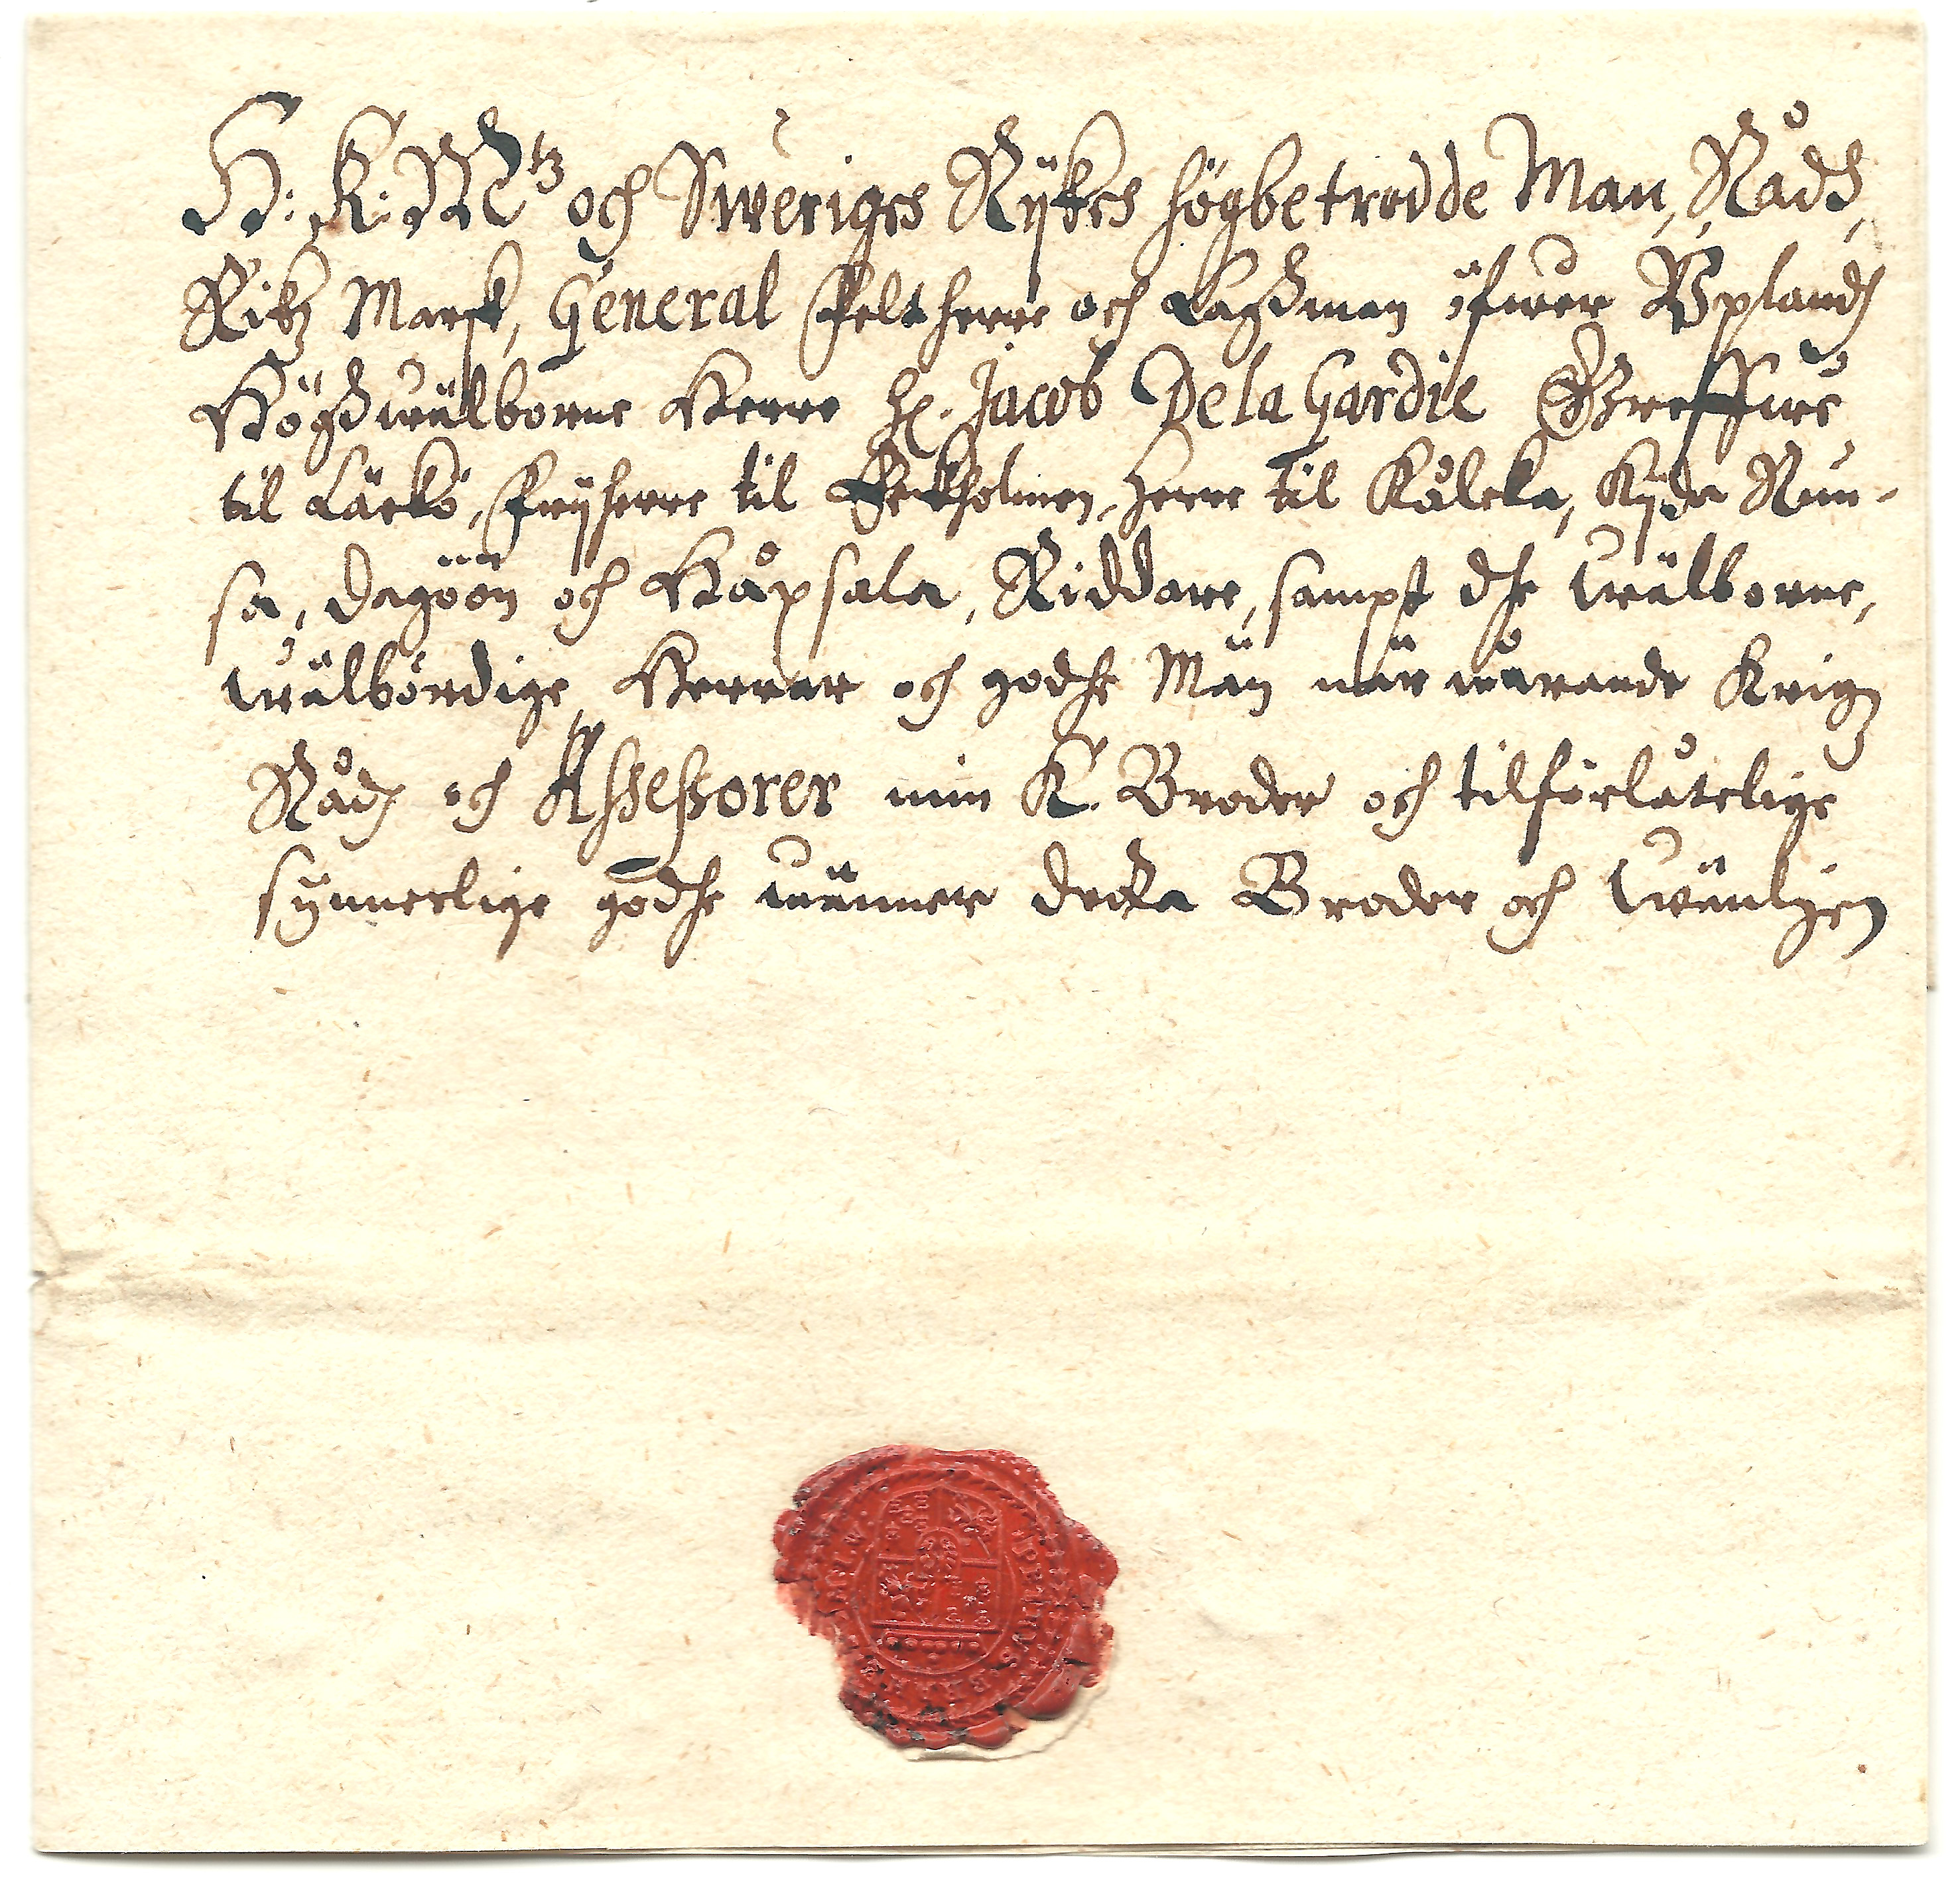 H: K: M:tz och Sweriges Rijkes högbetrodde Man, Rådh,
Rikz Marsk, General Feltherre och Laghman öfwer Vplandh
Höghwälborne Herre H. Jacob De la Gardie Greffwe
til Läckö, Frijherre til Eekholmen, Herre til Kålcka, Kijda Run-
sa, Dagöön och Håpsala, Riddare, sampt dhe Wälborne,
Wälbördige Herrar och godhe Män när warande Krigz
Rådh och Assessorer min K. Broder och tilförlåtelige
synnerlige godhe wänner detta Broder och Wänligen